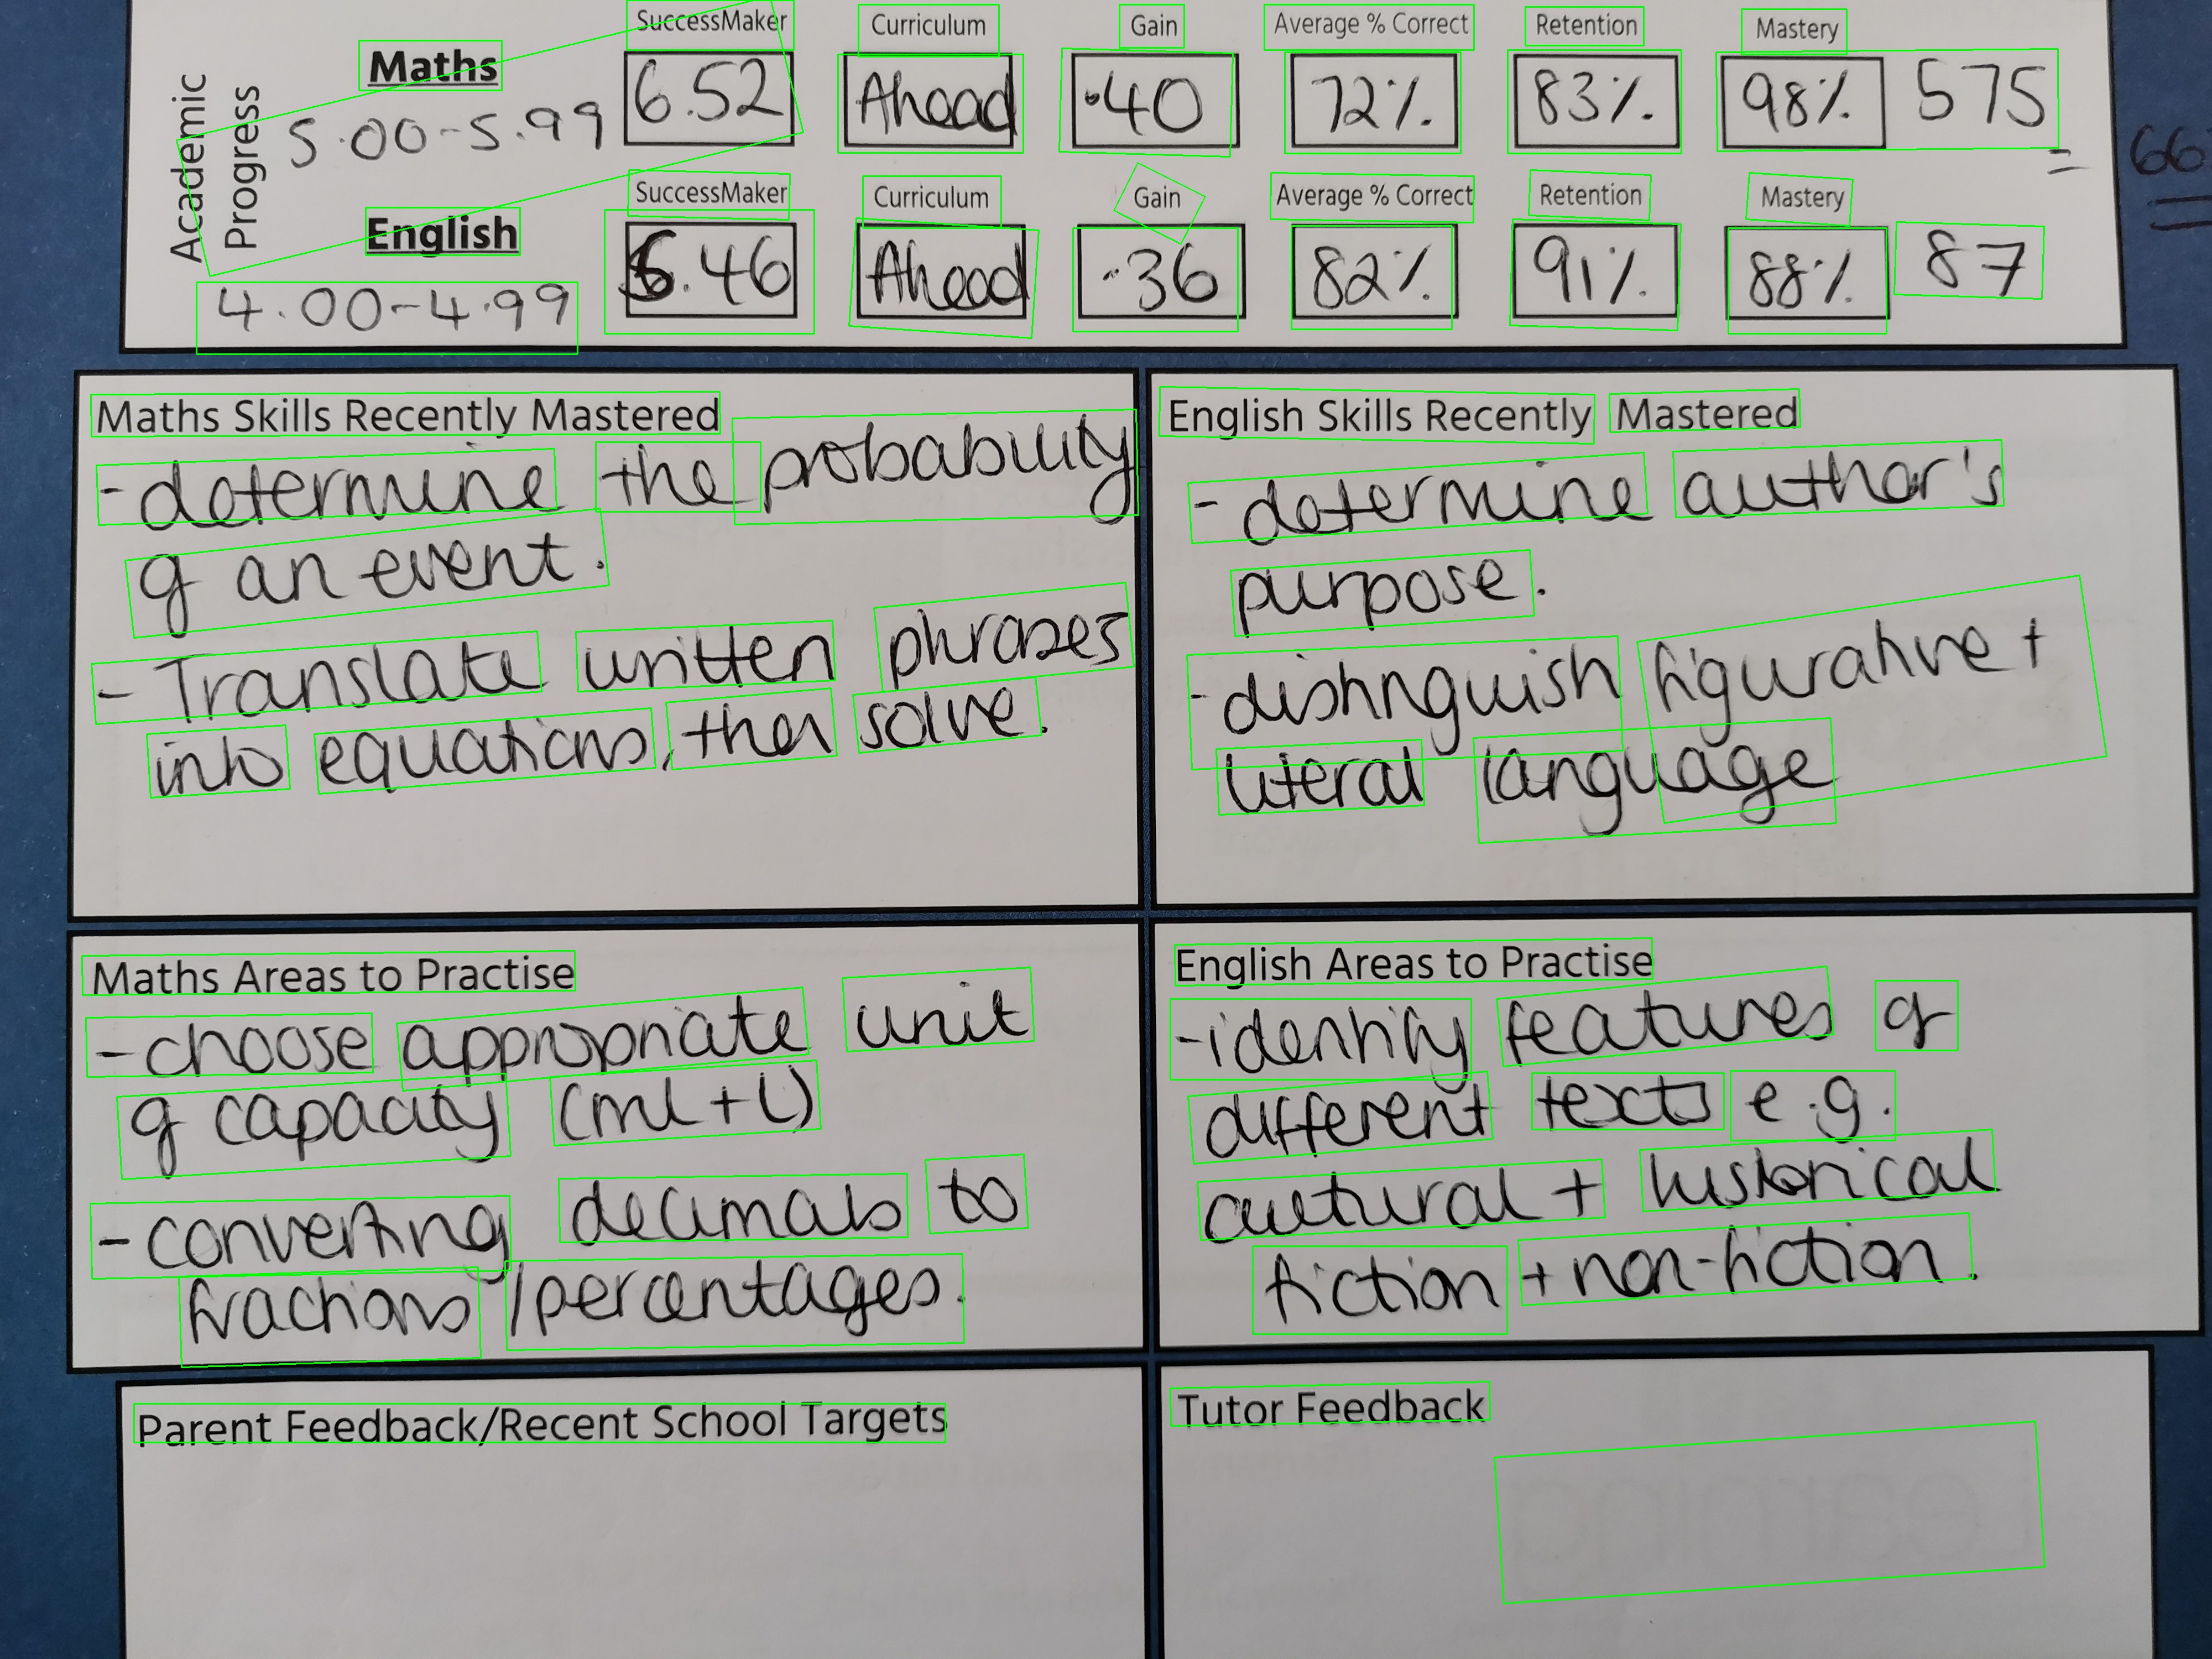 Academic Progress
Maths
SuccessMaker Curriculum Gain Average % Correct Retention Mastery
5.00-5.99 6.52 Ahead .40 72% 83% 98% 575
= 66
English
SuccessMaker Curriculum Gain Average % Correct Retention Mastery
4.00-4.99 5.46 Ahead .36 82% 91% 88% 87
Maths Skills Recently Mastered
- determine the probability
of an event.
- Translate written phrases
into equations, then solve.
English Skills Recently Mastered
- determine author's
purpose.
- distinguish figurative +
literal language
Maths Areas to Practise
- choose appropriate unit
of capacity (ml + l)
- converting decimals to
fractions/percentages.
English Areas to Practise
- identify features of
different texts e.g.
cultural + historical
fiction + non-fiction.
Parent Feedback/Recent School Targets
Tutor Feedback